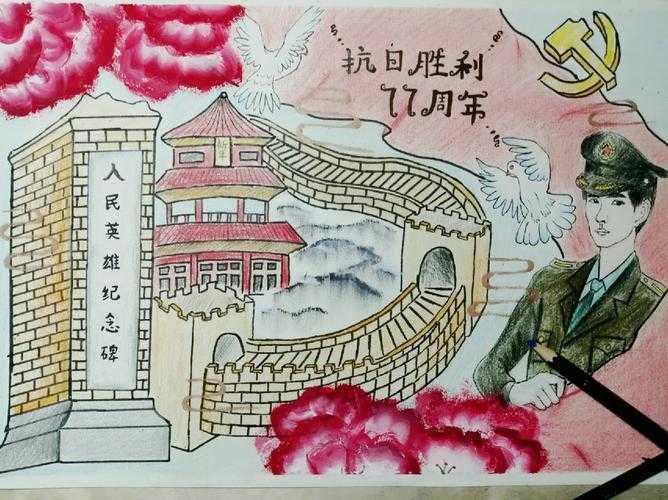 抗日胜利
77周年
人民英雄纪念碑